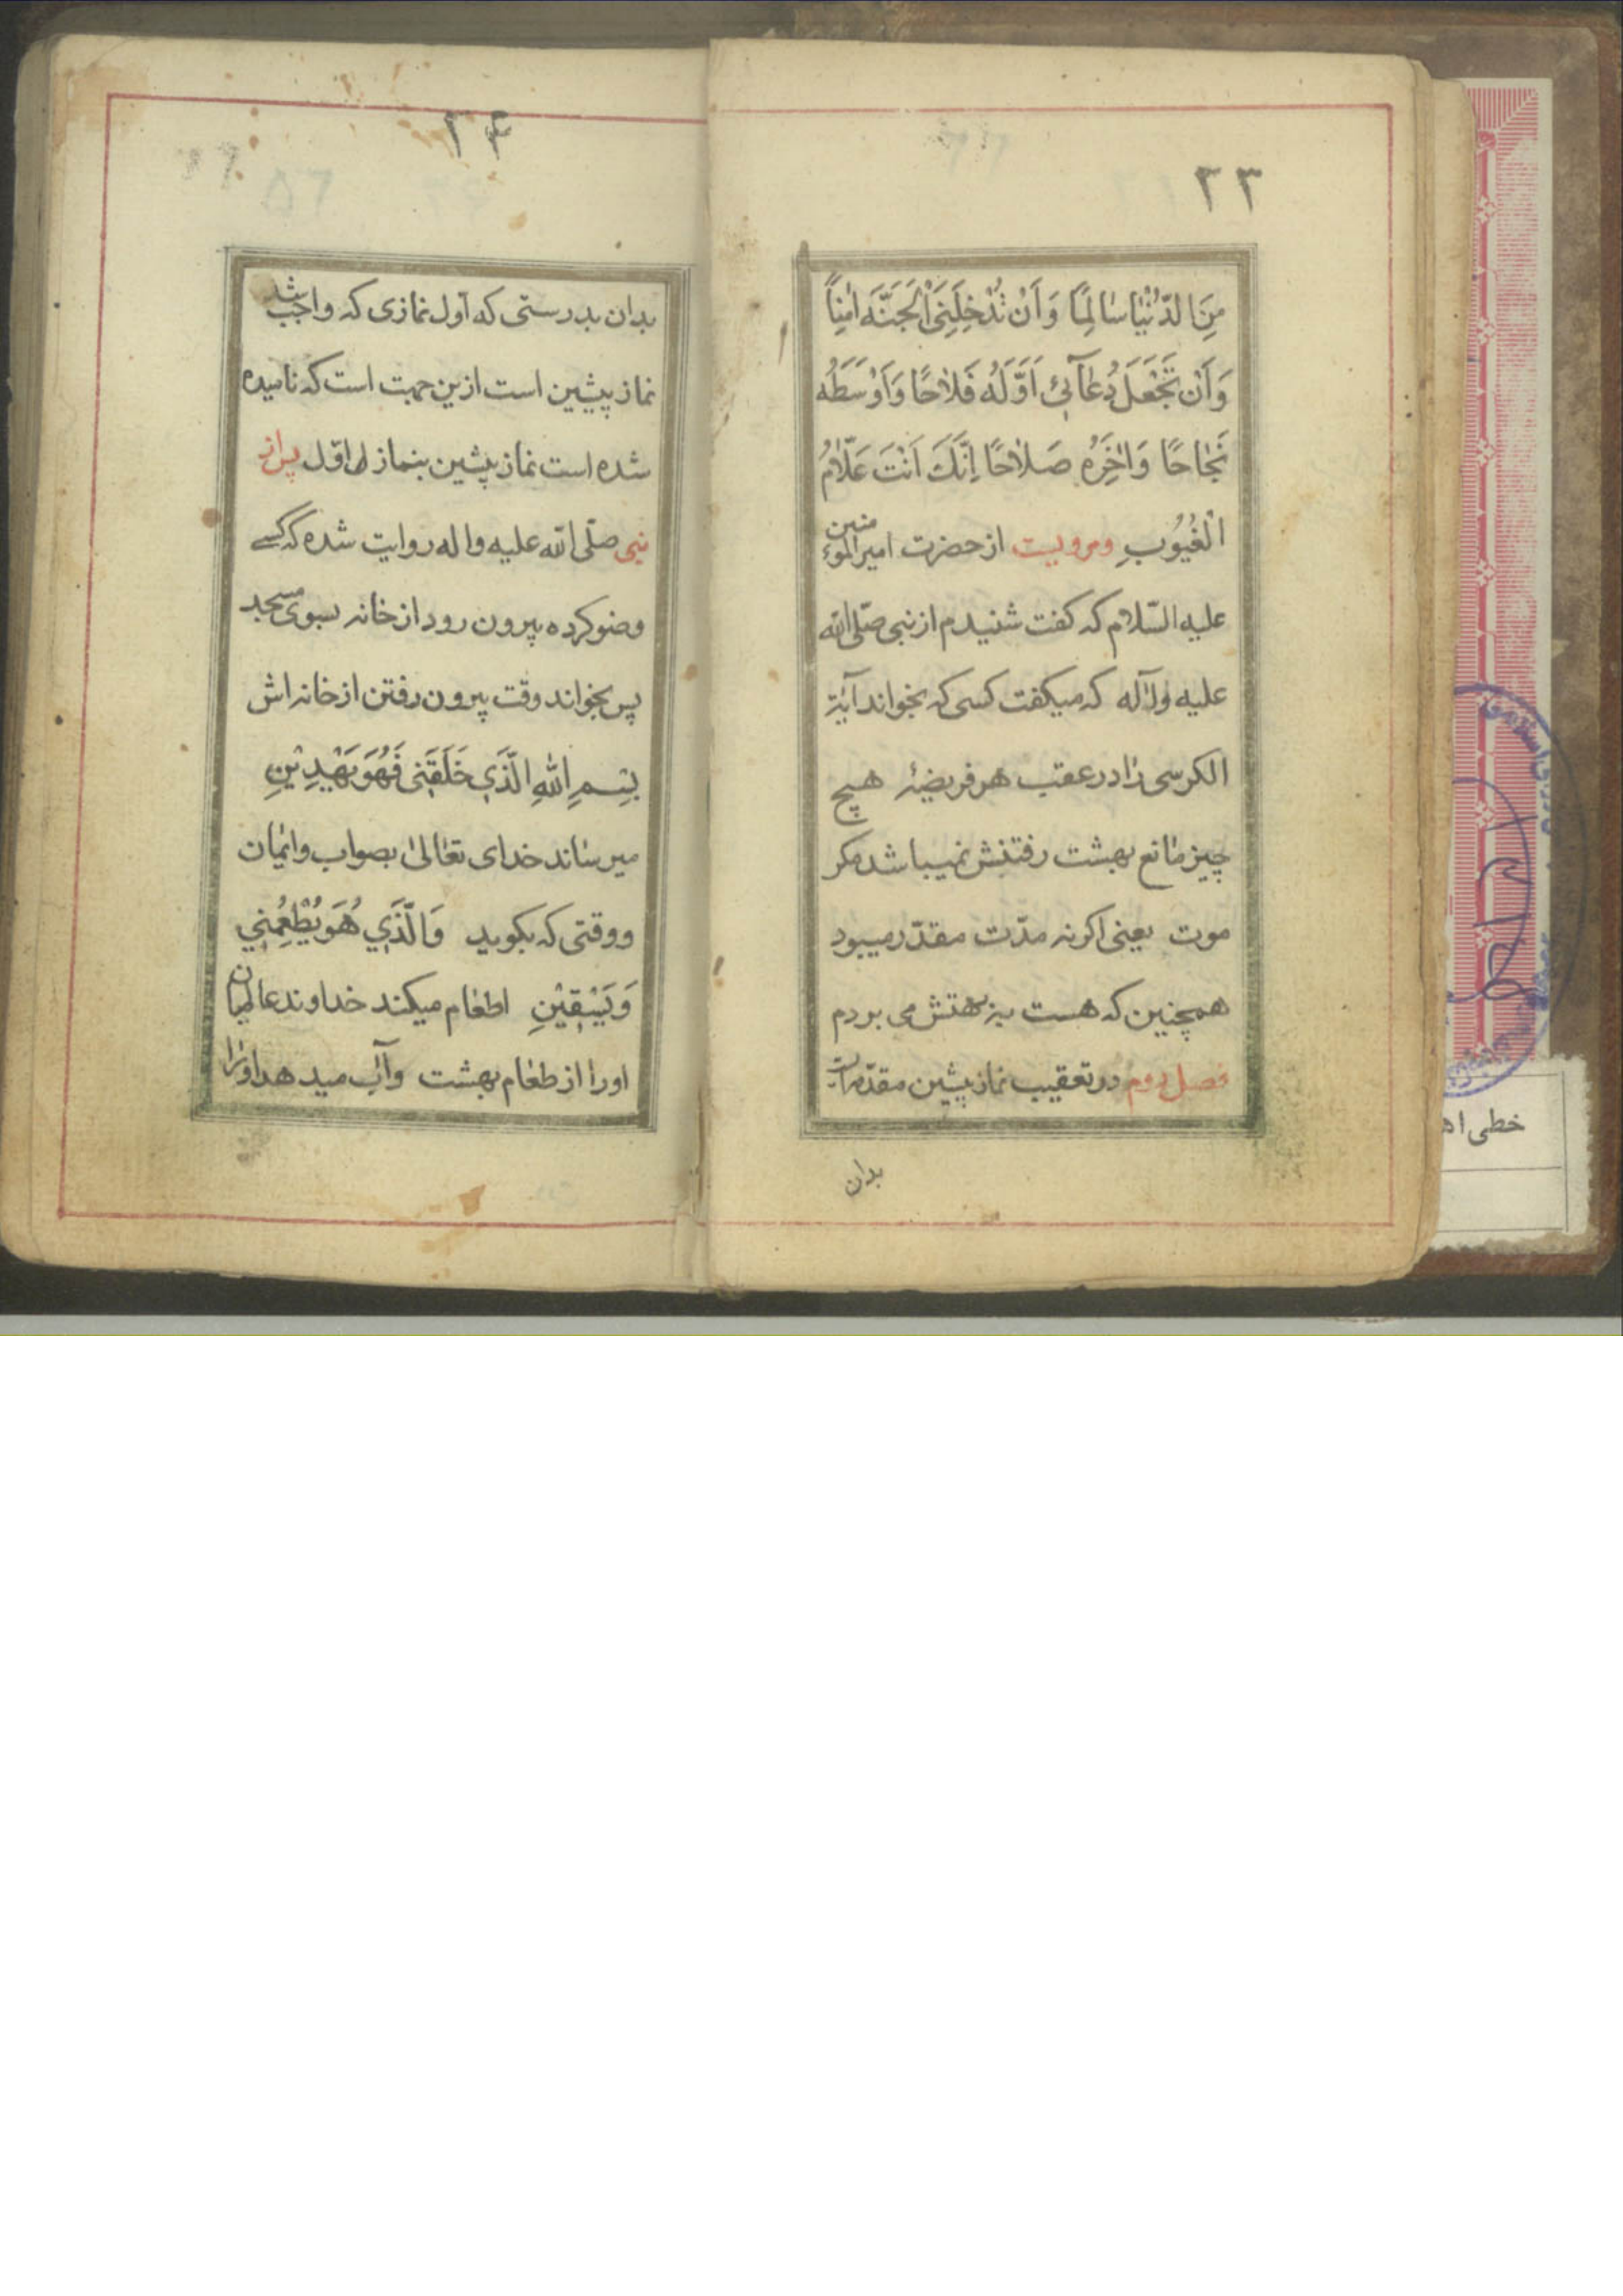 ۲۳
مِنَ الدُّنْیٰا سٰالِمًا وَ اَنْ تُدْخِلَنِیَ الْجَنَّهَ اٰمِنًا
وَ اَنْ تَجْعَلَ دُعٰآئی اَوَّلَهُ فَلاٰحًا وَ اَوْسَطَهُ
نَجٰاحًا وَ اٰخِرَهُ صَلاٰحًا اِنَّکَ اَنْتَ عَلّاٰمُ
الْغُیُوُبِ ومرویست از حضرت امیر الموءمنین
علیه السّلام که کفت شنیدم از نبی صلّی الله
علیه وآله که میکفت کسی که بخواند آیة
الکرسی را در عقب هر فریضهٔ هیچ
چیز مانع بهشت رفتنش نمیباشد مکر
موت یعنی اکرنه مدّت مقدّر میبود
همچنین که هست ببهشتش می بردم
فصل دوم در تعقیب نماز پیشین مقدّمات
بدان
۲۴
بدان بدرستی که اول نمازی که واجب شد
نماز پیشین است ازین جهت است که نامیده
شده است نماز پیشین بنماز اول پس از
نبی صلّی الله علیه واله روایت شده که کسی
وضو کرده بیرون رود از خانه بسوی مسجد
پس بخواند وقت بیرون رفتن از خانه اش
بِسْمِ اللهِ الَّذَی خَلَقَنی فَهُوَ یَهْدِیْنِ
میرساند خدای تعالیٰ بصواب وایمان
ووقتی که بکوید وَالَّذَی هُوَ یُطْعِمُنِی
وَ یَسْقِیْنِ اطعام میکند خداوند عالمیان
اورا از طعام بهشت وآب میدهد اورا
خطی اه